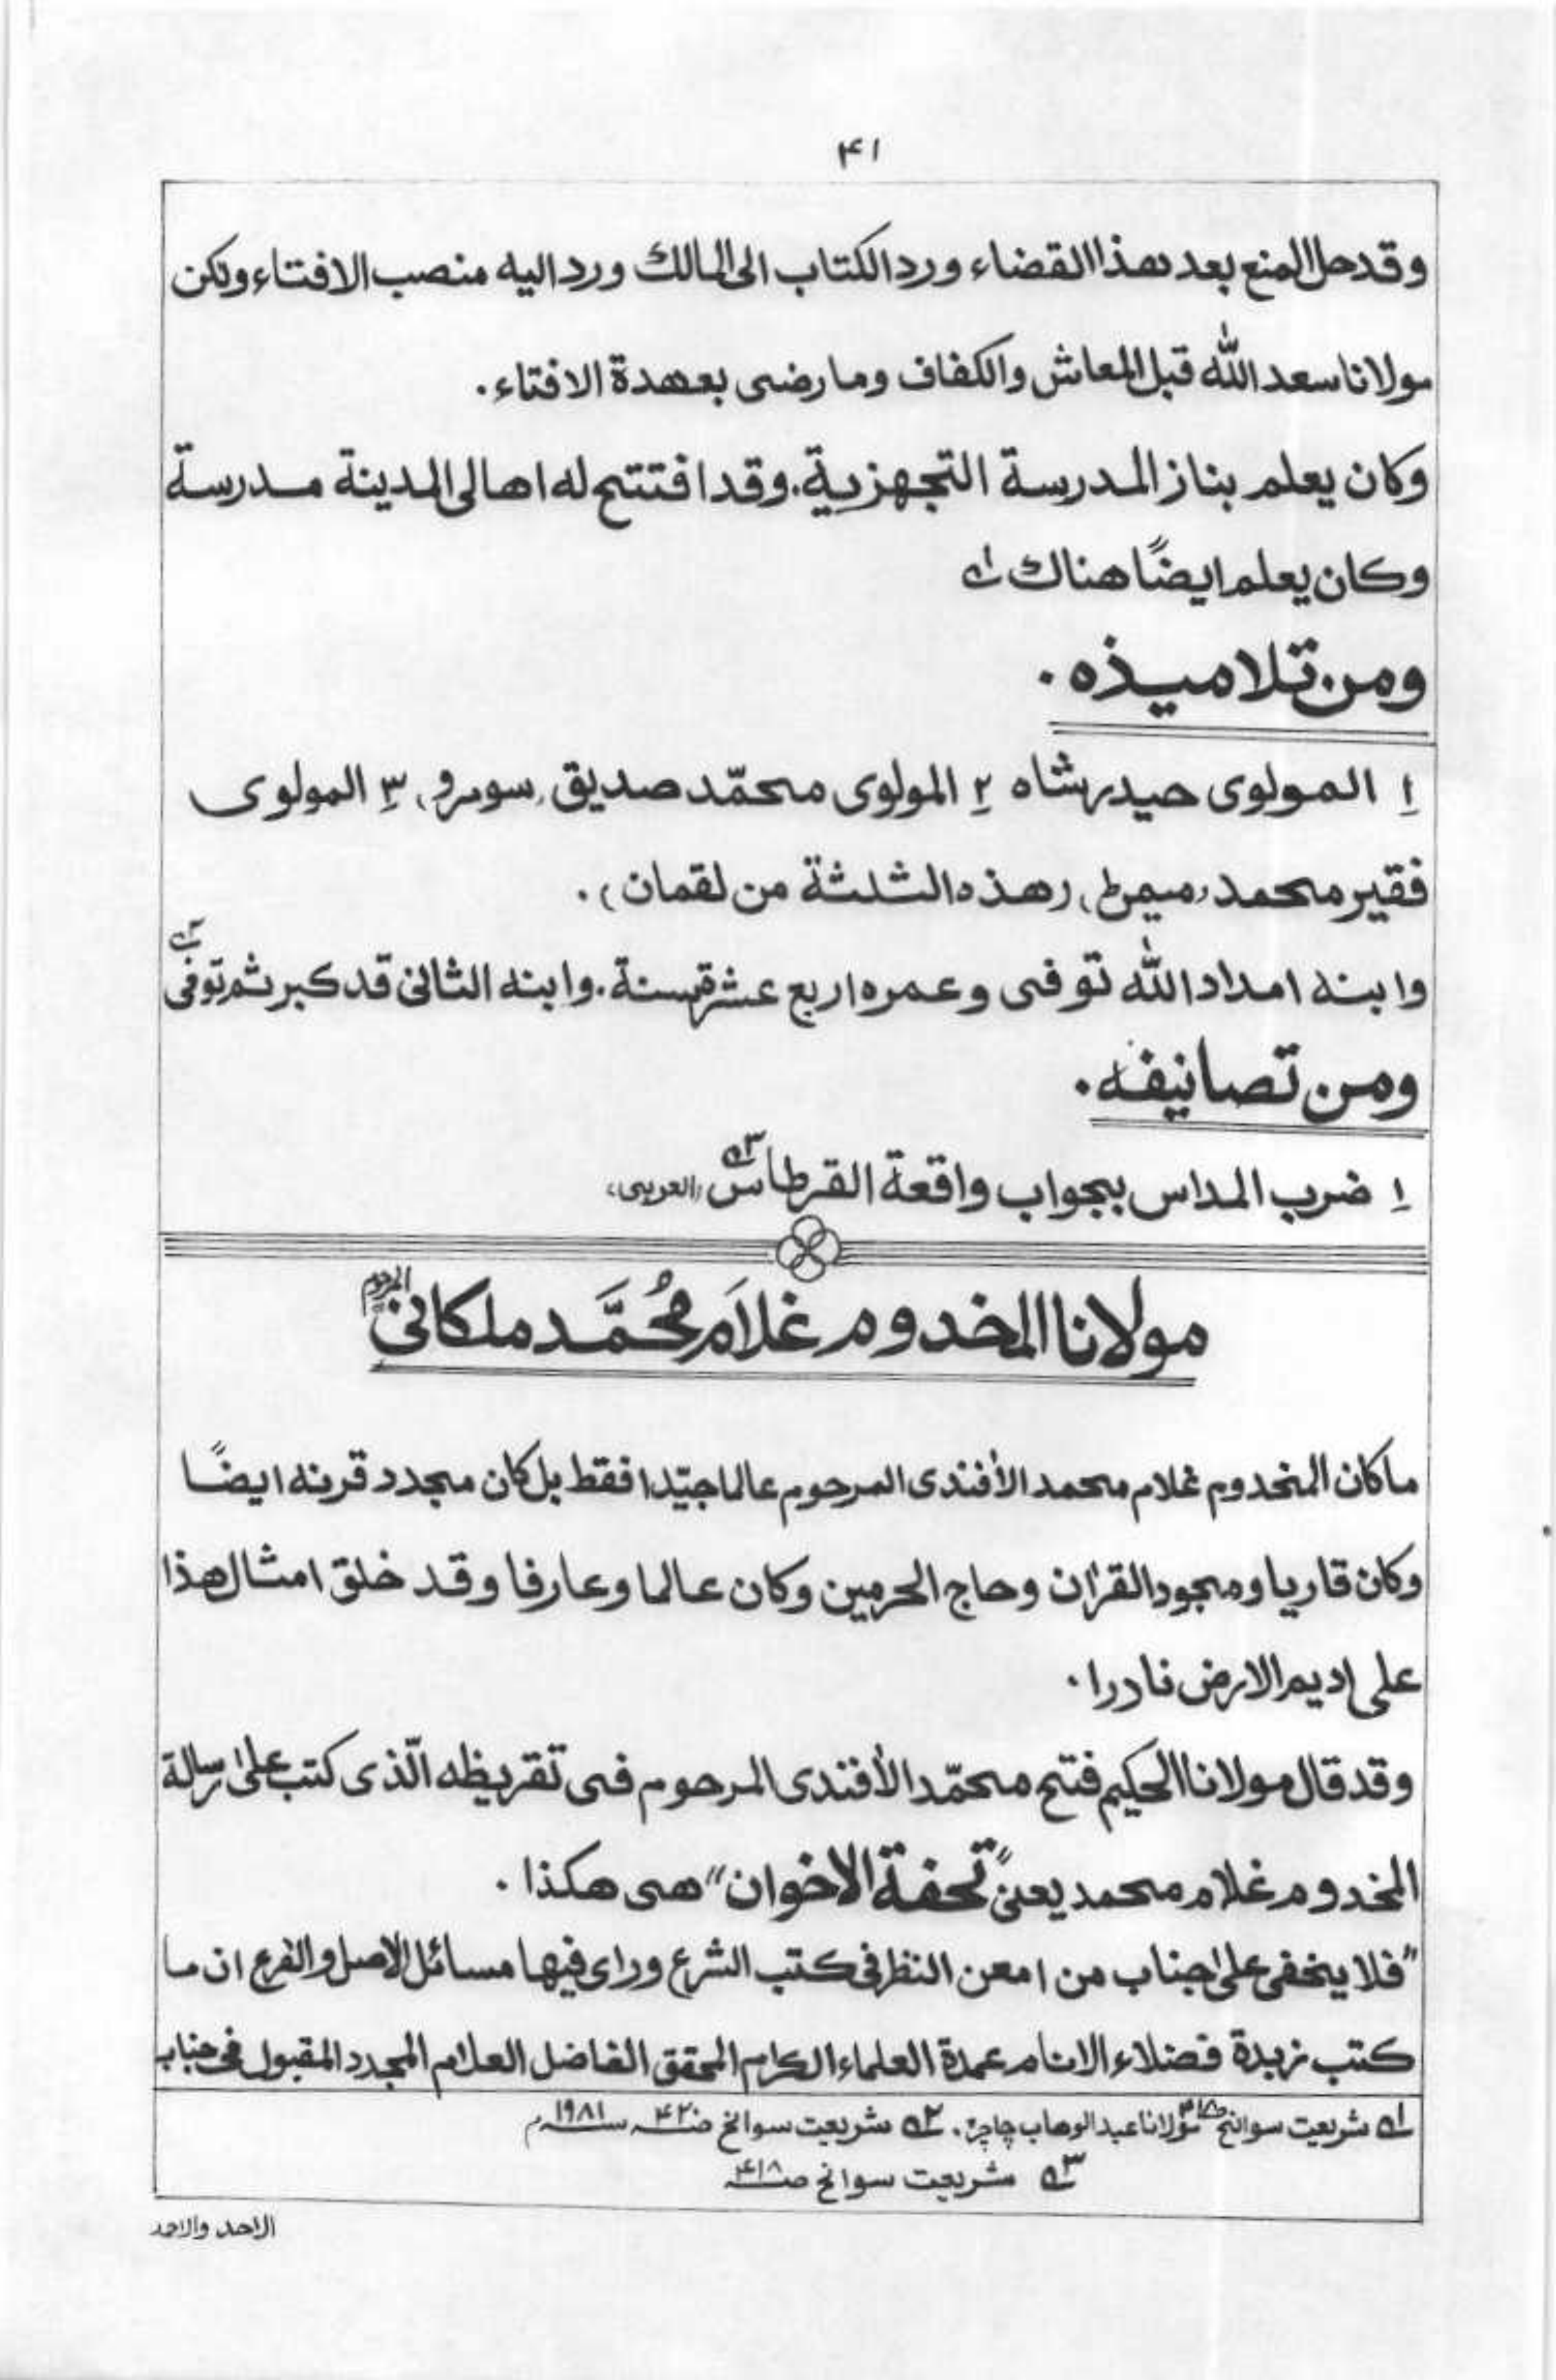 ۴۱
وقد حل المنع بعد هذا القضاء ورد الكتاب الى المالك ورد اليه منصب الافتاء ولكن
مولانا سعد الله قبل المعاش والكفاف وما رضى بعهدة الافتاء.
وكان يعلم بناز المدرسة التجهزية. وقد افتتح له اهالى المدينة مدرسة
وكان يعلم ايضًا هناك ١ه
ومن تلاميذه.
١ المولوى حيدر شاه ٢ المولوى محمّد صديق (سومرو) ٣ المولوى
فقير محمد (ميمن) (هذه الثلثة من لقمان).
وابنه امداد الله توفى وعمره اربع عشرة سنة. وابنه الثانى قد كبر ثم توفى ٢ه
ومن تصانيفه.
١ ضرب المداس بجواب واقعة القرطاس ٣ه (العربى)
مولانا المخدوم غلاَم مُحَمَّد ملكانىؒ المرحوم
ما كان المخدوم غلام محمد الأفندى المرحوم عالما جيّدا فقط بل كان مجدد قرنه ايضًا
وكان قاريا ومجود القرٰان وحاج الحرمين وكان عالما وعارفا وقد خلق امثال هذا
على اديم الارض نادرا.
وقد قال مولانا الحكيم فتح محمّد الأفندى المرحوم فى تقريظه الّذى كتب علىٰ رسالة
المخدوم غلام محمد يعنى "تحفة الاخوان" هى هكذا.
"فلا يخفى علىٰ جناب من امعن النظر فى كتب الشرع وراى فيها مسائل الاصل والفرع ان ما
كتب زبدة فضلاء الانام عمدة العلماء الكرام المحقق الفاضل العلام المجدد المقبول فى جناب
١ه شريعت سوانح مولانا عبدالوهاب چاچڑ. ٢ه شريعت سوانح صـ۴۲۰ سنـ۱۹۸۱م
٣ه شريعت سوانح صـ۴۱۸
الاحد والاحمد